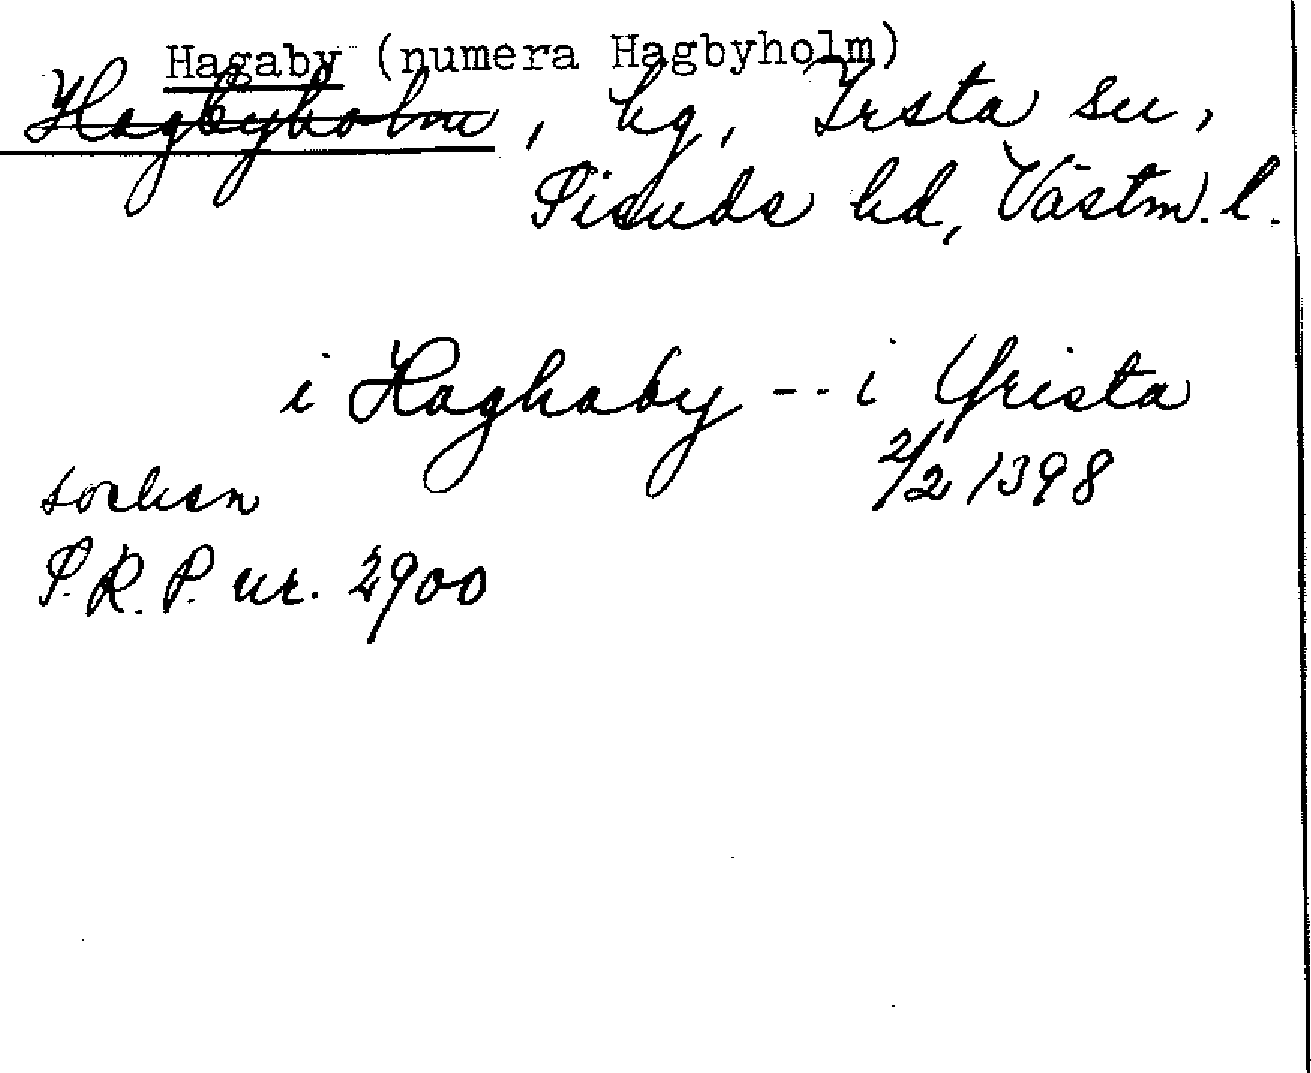 Hagaby (numera Hagbyholm)
Hagbyholm, hg, Irsta sn,
Siends hd, Västm. l.
i Haghaby -- i Yrista
socken 2/2 1398
S.R.P. nr. 2900